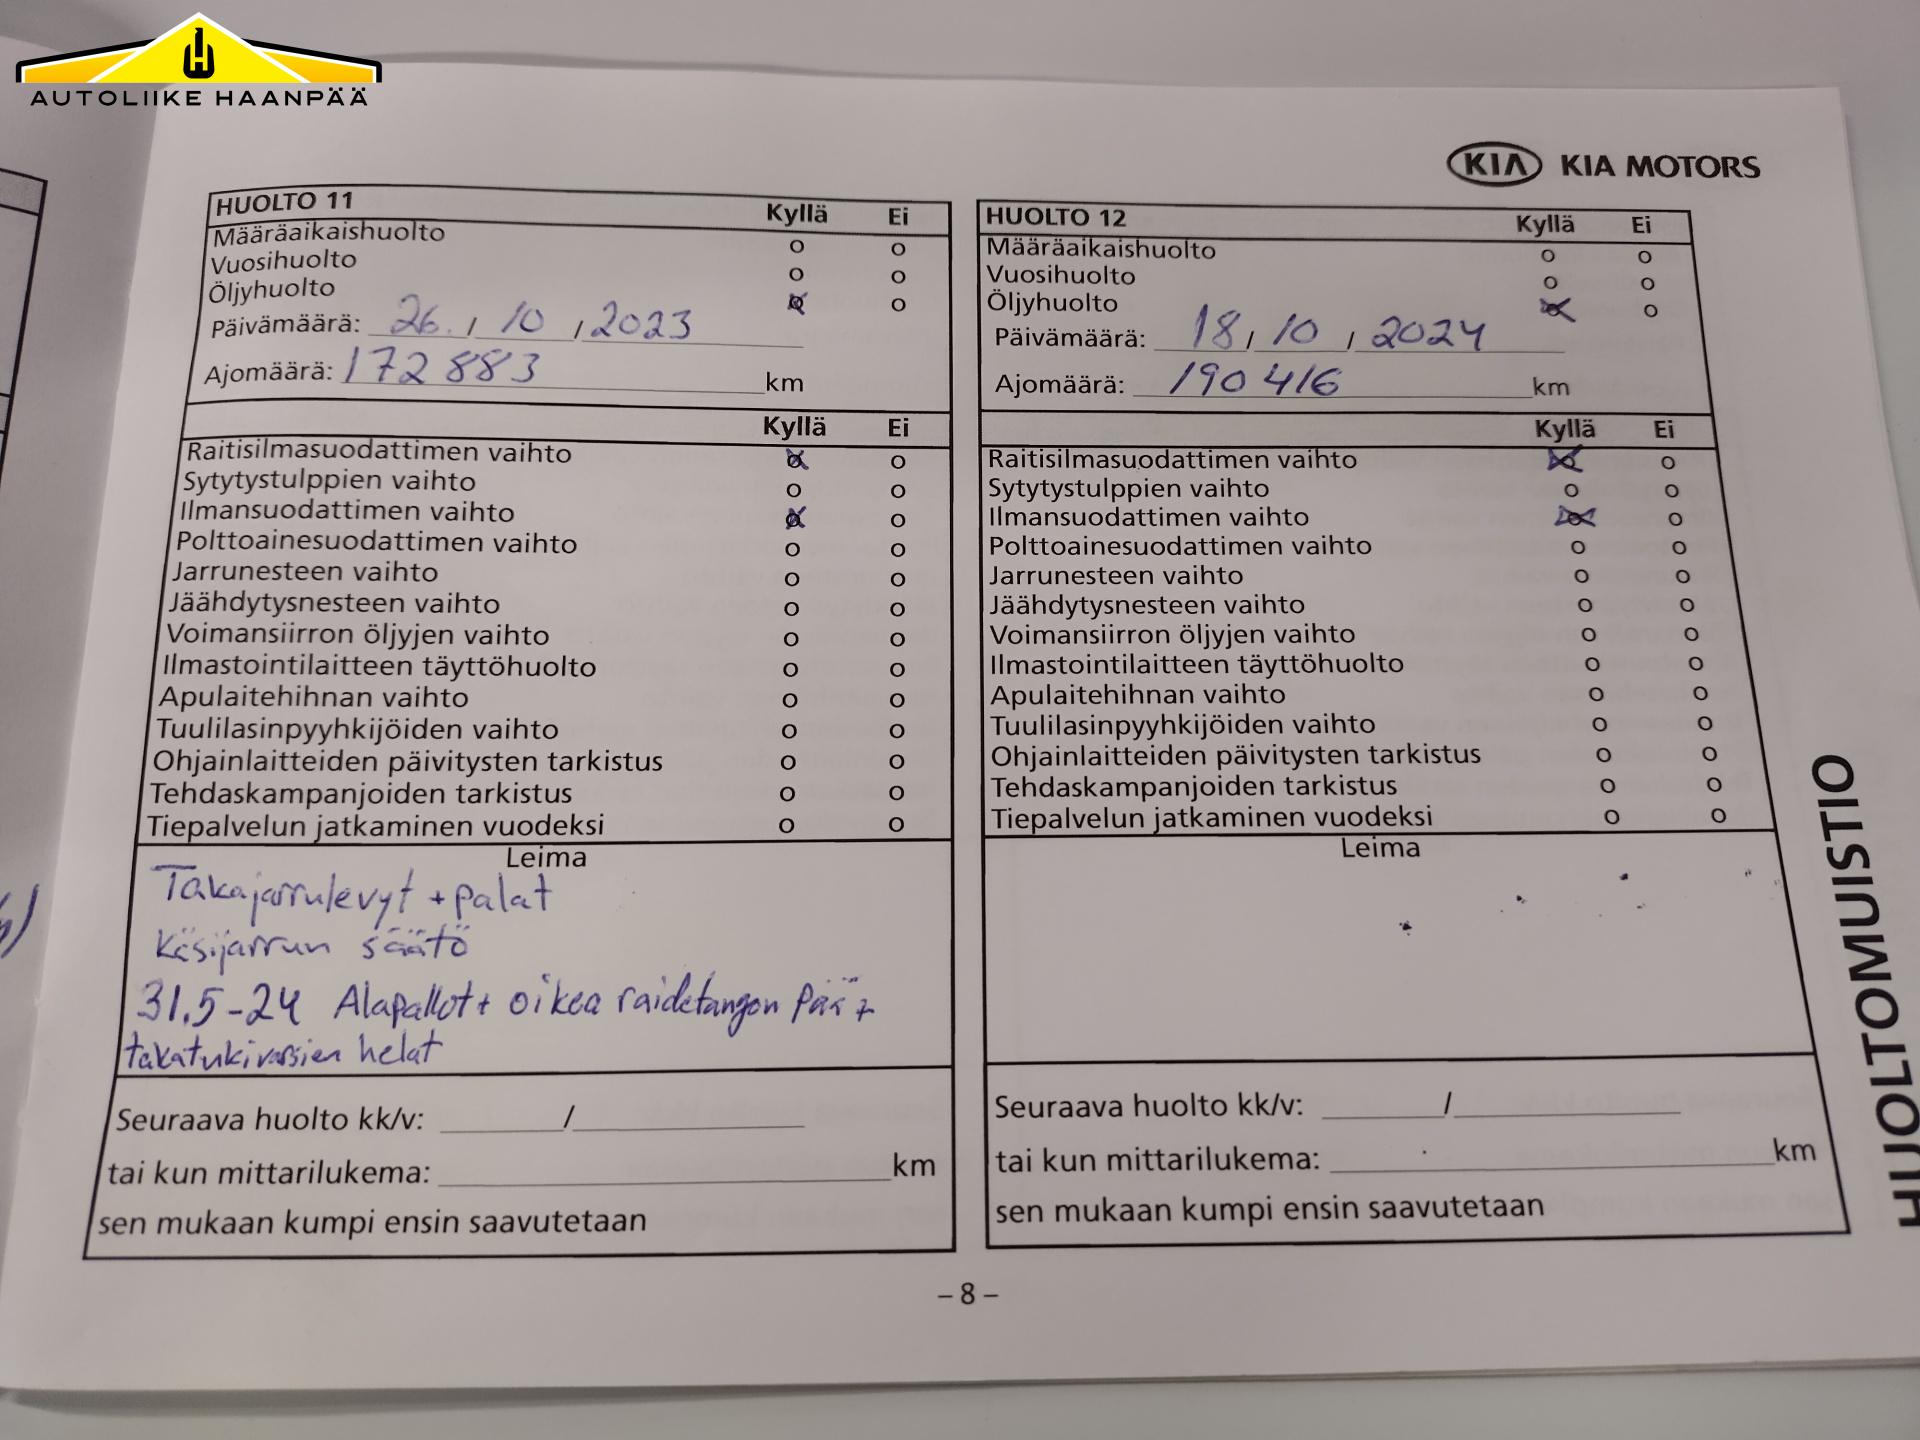 AUTOLIIKE HAANPÄÄ
KIA KIA MOTORS
HUOLTO 11 Kyllä Ei
Määräaikaishuolto o o
Vuosihuolto o o
Öljyhuolto x o
Päivämäärä: 26. / 10 / 2023
Ajomäärä: 172 883 km
Kyllä Ei
Raitisilmasuodattimen vaihto x o
Sytytystulppien vaihto o o
Ilmansuodattimen vaihto x o
Polttoainesuodattimen vaihto o o
Jarrunesteen vaihto o o
Jäähdytysnesteen vaihto o o
Voimansiirron öljyjen vaihto o o
Ilmastointilaitteen täyttöhuolto o o
Apulaitehihnan vaihto o o
Tuulilasinpyyhkijöiden vaihto o o
Ohjainlaitteiden päivitysten tarkistus o o
Tehdaskampanjoiden tarkistus o o
Tiepalvelun jatkaminen vuodeksi o o
Leima
Takajarrulevyt + palat
Käsijarrun säätö
31.5-24 Alapallot + oikea raidetangon pää +
takatukivarsien helat
Seuraava huolto kk/v: ____/____
tai kun mittarilukema: ____ km
sen mukaan kumpi ensin saavutetaan
HUOLTO 12 Kyllä Ei
Määräaikaishuolto o o
Vuosihuolto o o
Öljyhuolto x o
Päivämäärä: 18 / 10 / 2024
Ajomäärä: 190 416 km
Kyllä Ei
Raitisilmasuodattimen vaihto x o
Sytytystulppien vaihto o o
Ilmansuodattimen vaihto x o
Polttoainesuodattimen vaihto o o
Jarrunesteen vaihto o o
Jäähdytysnesteen vaihto o o
Voimansiirron öljyjen vaihto o o
Ilmastointilaitteen täyttöhuolto o o
Apulaitehihnan vaihto o o
Tuulilasinpyyhkijöiden vaihto o o
Ohjainlaitteiden päivitysten tarkistus o o
Tehdaskampanjoiden tarkistus o o
Tiepalvelun jatkaminen vuodeksi o o
Leima
Seuraava huolto kk/v: ____/____
tai kun mittarilukema: ____ km
sen mukaan kumpi ensin saavutetaan
HUOLTOMUISTIO
– 8 –